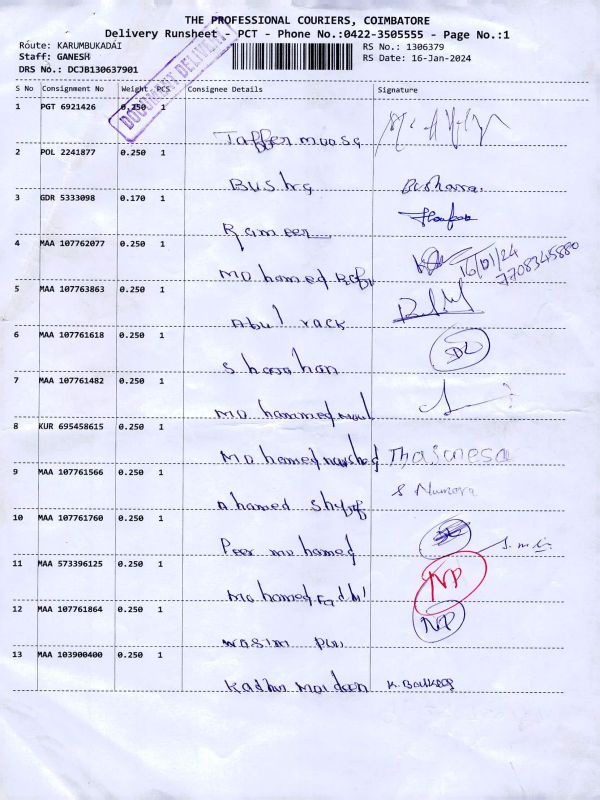 THE PROFESSIONAL COURIERS, COIMBATORE
Delivery Runsheet - PCT - Phone No.:0422-3505555 - Page No.:1
Route: KARUMBUKADAI
RS No.: 1306379
Staff: GANESH
RS Date: 16-Jan-2024
DRS No.: DCJB130637901
DOCUMENT DELIVERY
S No Consignment No Weight PCS Consignee Details Signature
1 PGT 6921426 0.250 1
Jaffer moosa
2 POL 2241877 0.250 1
Bushra
3 GDR 5333098 0.170 1
Rameer
4 MAA 107762077 0.250 1
Mohamed Rafi 16/01/24
7708345880
5 MAA 107763863 0.250 1
Abul rack
6 MAA 107761618 0.250 1
Shajahan
7 MAA 107761482 0.250 1
Mohammed
8 KUR 695458615 0.250 1
Mohamed Thajunesa
9 MAA 107761566 0.250 1
Ahamed
10 MAA 107761760 0.250 1
Peer mohamed
11 MAA 573396125 0.250 1
Mohamed Fadhil NP
12 MAA 107761864 0.250 1
NP
wasim
13 MAA 103900400 0.250 1
Kadhar Moideen